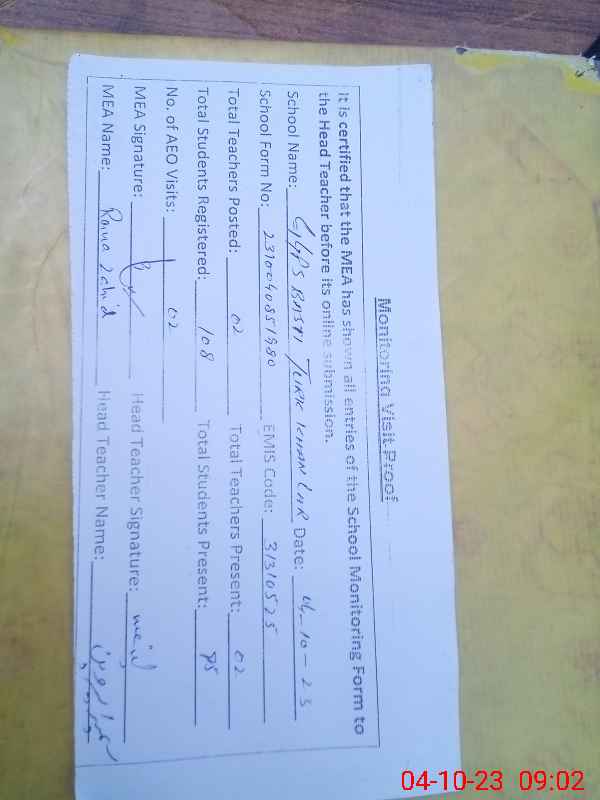 Monitoring Visit Proof
It is certified that the MEA has shown all entries of the School Monitoring Form to
the Head Teacher before its online submission.
School Name: GGPS BASTI TURK KHAN Date: 04-10-23
School Form No: EMIS Code: 31310525
Total Teachers Posted: 02 Total Teachers Present: 02
Total Students Registered: 108 Total Students Present: 85
No. of AEO Visits: 02
MEA Signature: Head Teacher Signature:
MEA Name: Rana Head Teacher Name:
04-10-23 09:02